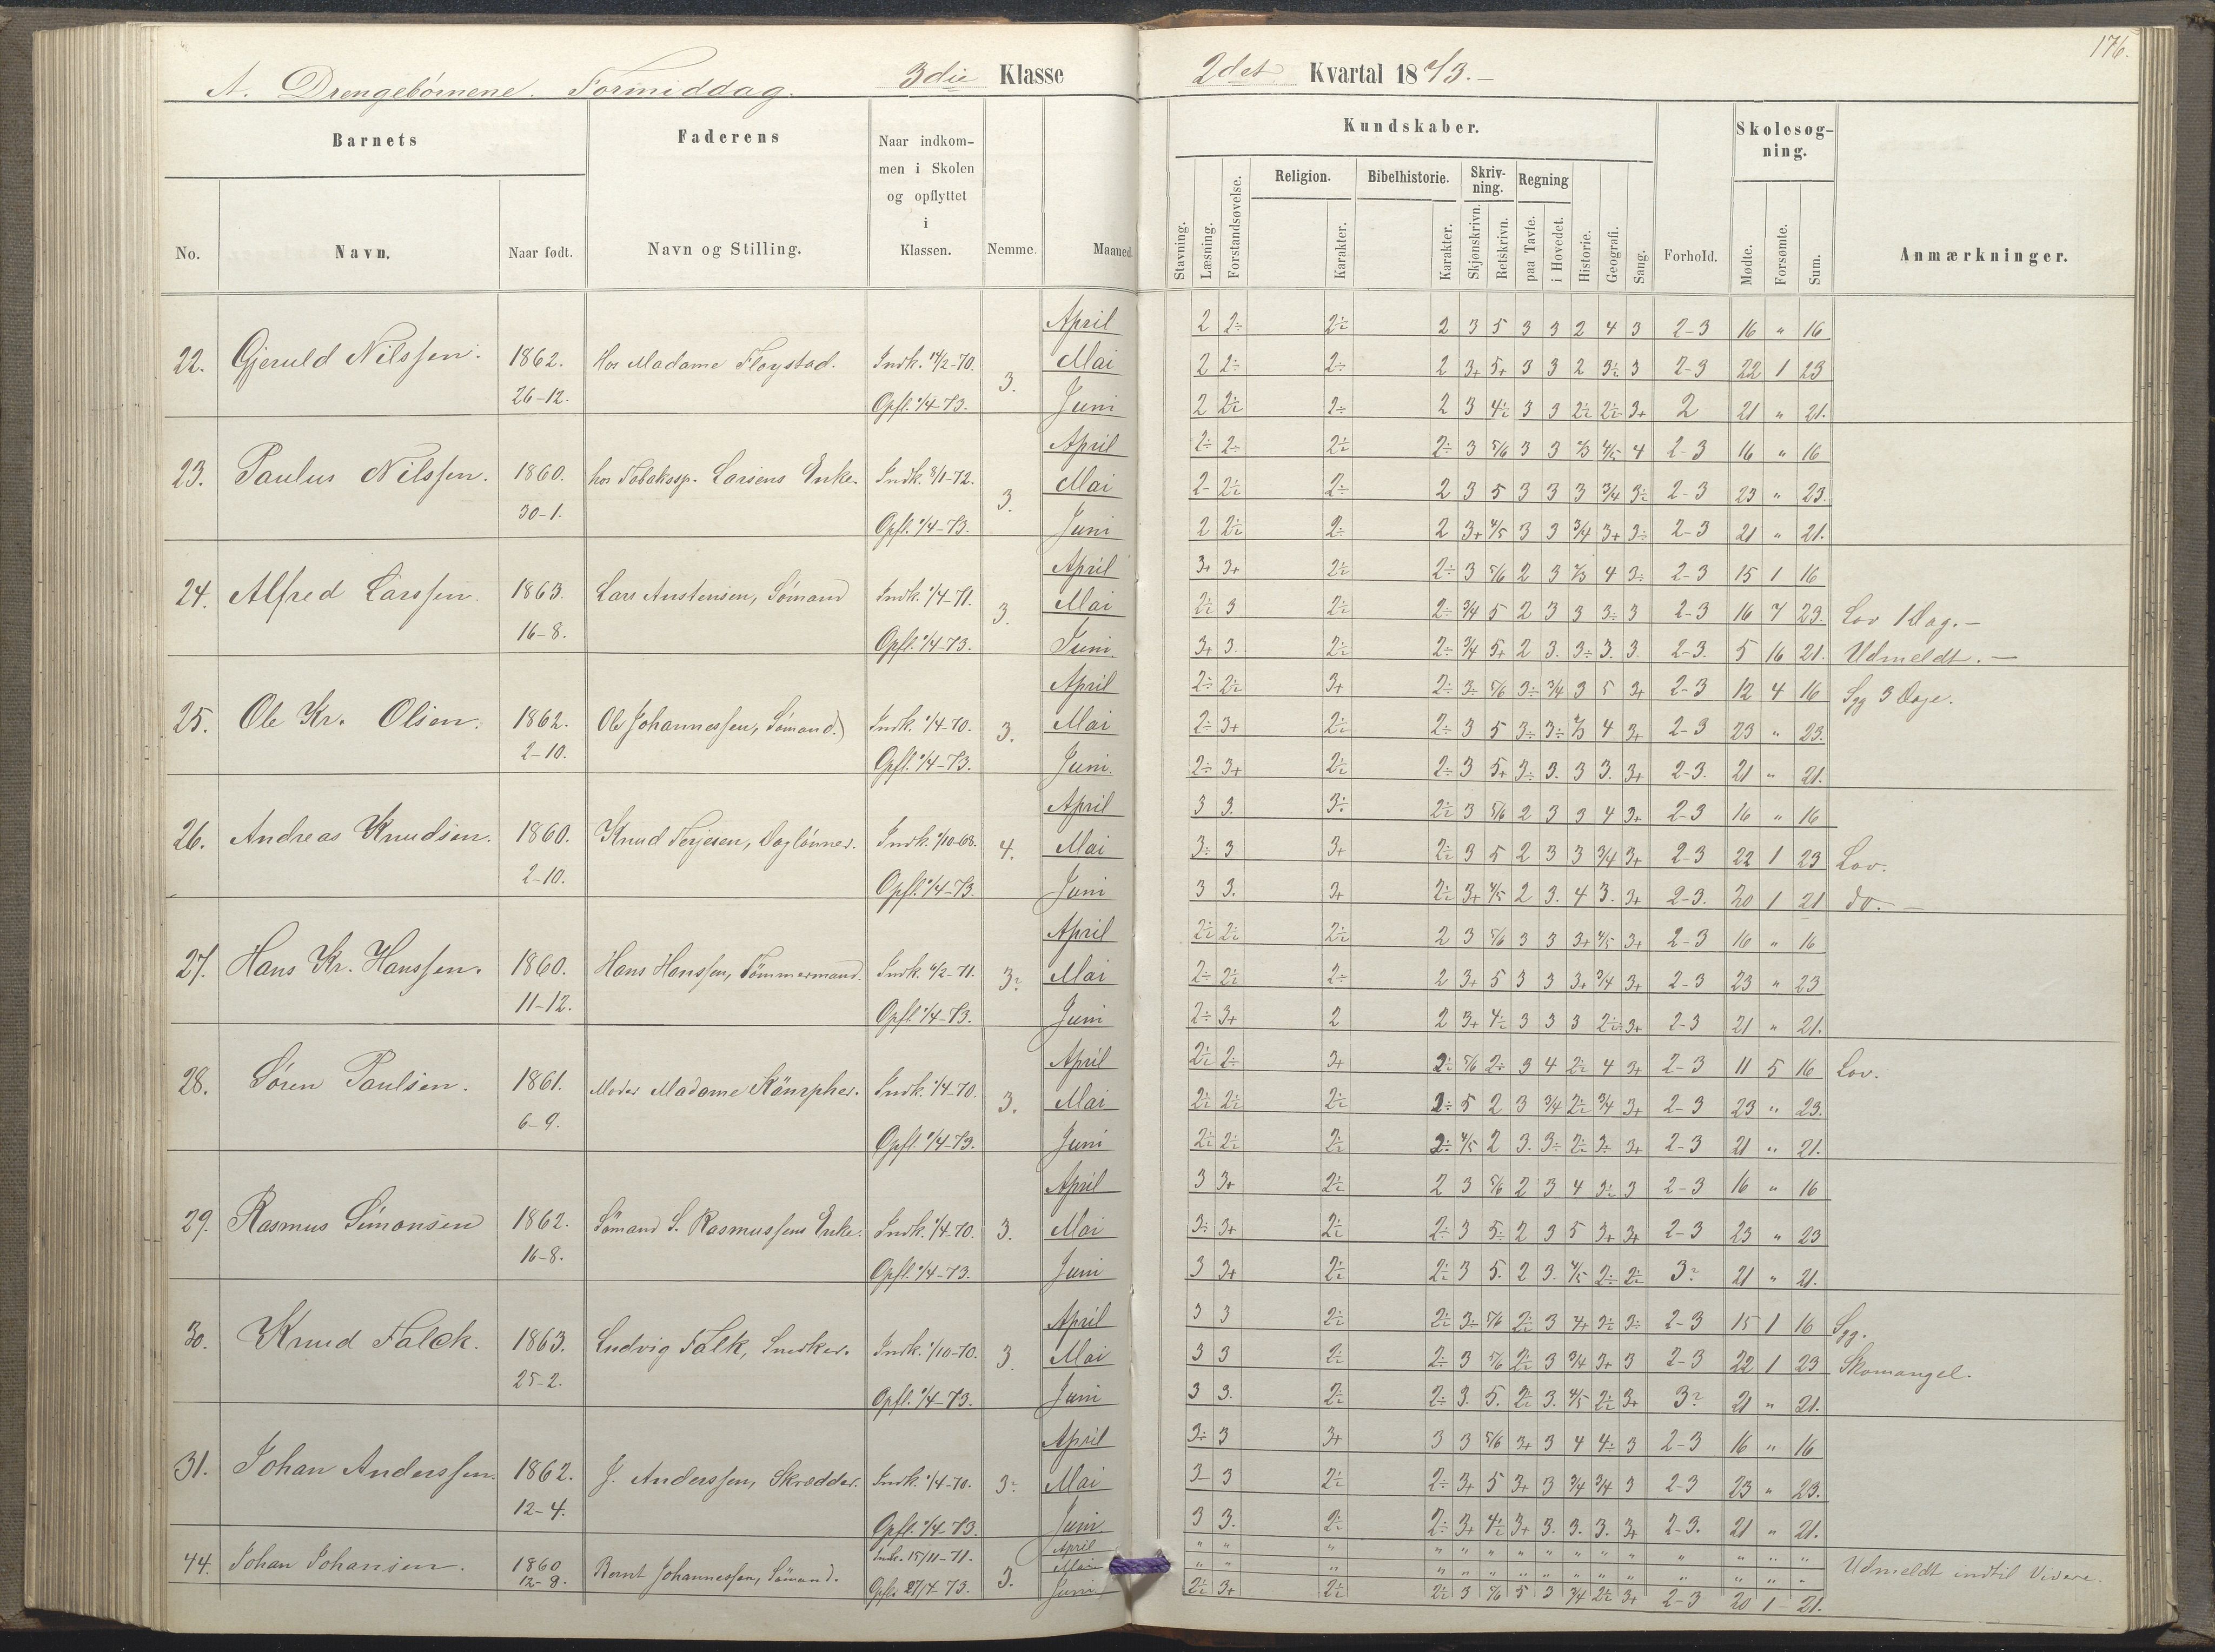 176.
A. Drengebörnene. Formiddag. 3die Klasse 2det Kvartal 1873.-
Barnets Faderens Naar indkommen i Skolen og opflyttet i Klassen. Nemme. Maaned. Kundskaber. Forhold. Skolesogning. Anmærkninger.
No. Navn. Naar født. Navn og Stilling.
Stavning. Læsning. Forstandsøvelse. Religion. Karakter. Bibelhistorie. Karakter. Skrivning. Skjønskrivn. Retskrivn. Regning paa Tavle. i Hovedet. Historie. Geografi. Sang. Mødte. Forsømte. Sum.
April 2 2÷ 2÷ 2 3 5 3 3 2 4 3 2-3 16 " 16
22. Gjeruld Nilssen. 1862. Hos Madame Fløystad. Indk. 14/2-70. 3. Mai 2 2÷ 2÷ 2 3+ 5+ 3 3 2 3÷ 3 2-3 22 1 23
26-12. Opfl. 1/4-73. Juni 2 2÷ 2÷ 2 3 4÷ 3 3 2÷ 2÷ 3+ 2 21 " 21.
April 2÷ 2÷ 2÷ 2÷ 3 5/6 3 3 2/3 4/5 4 2-3 16 " 16
23. Paulus Nilssen. 1860. hos Tobakssp. Larsens Enke. Indk. 8/1-72. 3. Mai 2- 2÷ 2÷ 2 3 5 3 3 3 3/4 3÷ 2-3 23 " 23.
30-1. Opfl. 1/4-73. Juni 2 2÷ 2÷ 2 3+ 4/5 3 3 3/4 3+ 3÷ 2-3 21 " 21.
April 3+ 3+ 2÷ 2÷ 3 5/6 2 3 2/3 4 3÷ 2-3 15 1 16
24. Alfred Larssen. 1863. Lars Austensen, Sömand Indk. 1/4-71. 3. Mai 2÷ 3 2÷ 2÷ 3/4 5 2 3 3 3÷ 3 2-3 16 7 23. Lov 1 Dag.-
16-8. Opfl. 1/4-73. Juni. 3+ 3. 2÷ 2÷ 3/4 5+ 2 3. 3÷ 3. 3. 2-3. 5 16 21. Udmeldt.-
April 2÷ 2÷ 3+ 2÷ 3÷ 5/6 3÷ 3/4 3 5 3+ 2-3 12 4 16 Syg 3 Dage.
25. Ole Kr. Olsen. 1862. Ole Johannessen, Sömand. Indk. 1/4-70. 3. Mai 2÷ 3+ 2÷ 2÷ 3 5 3÷ 3÷ 2/3 4 3+ 2-3 23 " 23.
2-10. Opfl. 1/4-73. Juni. 2÷ 3+ 2÷ 2÷ 3 5+ 3÷ 3. 3 3. 3+ 2-3. 21 " 21.
April 3 3. 3÷ 2÷ 3 5/6 2 3 3 4 3+ 2-3 16 " 16
26. Andreas Knudsen. 1860. Knud Terjesen, Daglönner. Indk. 1/10-68. 4. Mai 3÷ 3 3+ 2÷ 3 5 2 3 3 3/4 3+ 2-3 22 1 23 Lov.
2-10. Opfl. 1/4-73. Juni 3 3. 3+ 2÷ 3+ 4/5 2 3. 4 3. 3+ 2-3. 20 1 21 do.-
April 2÷ 2÷ 2÷ 2 3 5/6 3 3 3+ 4/5 3+ 2-3 16 " 16
27. Hans Kr. Hanssen. 1860. Hans Hanssen, Tömmermand. Indk. 4/2-71. 3? Mai 2÷ 2÷ 2÷ 2 3+ 5 3 3 3+ 3/4 3+ 2-3 23 " 23
11-12. Opfl. 1/4-73. Juni 2÷ 3+ 2 2 3+ 4÷ 3 3 3 2÷ 3+ 2-3 21 " 21.
April 2÷ 2÷ 3+ 2÷ 5/6 2÷ 3 4 2÷ 4 3+ 2-3 11 5 16 Lov.
28. Sören Paulsen. 1861. Moder Madame Kämpher. Indk. 1/4-70. 3. Mai 2÷ 2÷ 2÷ 2÷ 5 2 3 3/4 2÷ 3/4 3+ 2-3 23 " 23.
6-9. Opfl. 1/4-73. Juni 2÷ 2÷ 2÷ 2÷ 4/5 2 3. 3÷ 2÷ 3÷ 3+ 2-3 21 " 21.
April 3 3+ 2÷ 2 3 5/6 2 3 4 3÷ 3 2-3 16 " 16
29. Rasmus Simonsen 1862. Sömand S. Rasmussens Enke. Indk. 1/4-70. 3. Mai 3÷ 3+ 2÷ 2÷ 3 5÷ 2 3 5 3+ 3+ 2-3 23 " 23
16-8. Opfl. 1/4-73. Juni 3 3+ 2÷ 2÷ 3 5. 2 3. 4/5 2÷ 2÷ 3? 21 " 21.
April 3 3 2÷ 2÷ 3÷ 5/6 2÷ 3 4+ 3÷ 3÷ 2-3 15 1 16 Syg.
30. Knud Falck. 1863. Ludvig Falk, Snedker. Indk. 1/10-70. 3. Mai 3 3 2÷ 2÷ 3 5/6 2÷ 3 3/4 3+ 3 2-3 22 1 23 Skomangel.
25-2. Opfl. 1/4-73. Juni 3 3. 2÷ 2÷ 3. 5. 2÷ 3. 4/5 2÷ 3+ 3? 21 " 21.
April 3÷ 3 3+ 3 3 5/6 3+ 3 4 4÷ 3 2-3 16 " 16
31. Johan Anderssen. 1862. J. Anderssen, Skrædder. Indk. 1/4-70. 3? Mai 3- 3 2÷ 2÷ 3+ 5 3+ 3 3/4 3/4 3 2-3 23 " 23.
12-4. Opfl. 1/4-73. Juni. 3 3. 2÷ 2÷ 3+ 4÷ 3+ 3. 3. 3. 3+ 2-3. 21 " 21.
Indk. 15/11-71. April " " " " " " " " " " " " " " "
44. Johan Johansen. 1860 Bernt Johannessen, Sömand. 3. Mai " " " " " " " " " " " " " " " Udmeldt indtil Videre.
12-8. Opfl. 27/4-73. Juni 2÷ 3+ 2÷ 2÷ 3 5/6 5 3 3/4 2÷ 3+ 2-3 20 1 21.